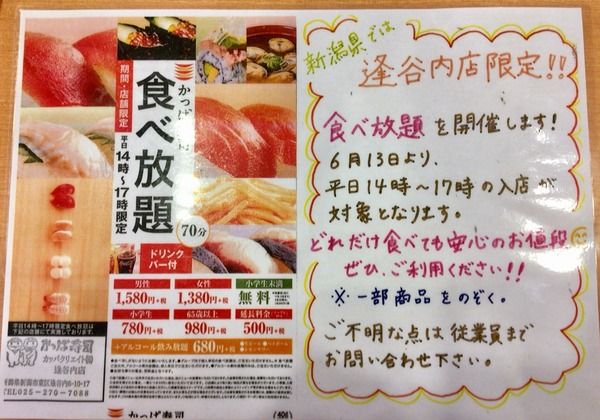 かっぱ寿司
食べ放題
70分
期間・店舗限定
平日14時〜17時限定
ドリンク
バー付
男性
1,580円+税
女性
1,380円+税
小学生未満
無料
小学生
780円+税
65歳以上
980円+税
延長料金
500円+税
+アルコール飲み放題 680円+税
平日14時〜17時食べ放題は以下
下記の店舗にて実施しております。
かっぱ寿司
カッパクリエイト㈱
逢谷内店
新潟県新潟市東区逢谷内6-10-17
TEL025-279-7088
かっぱ寿司
新潟県では
逢谷内店限定!!
食べ放題を開催します!
6月13日より、
平日14時〜17時の入店が
対象となります。
どれだけ食べても安心のお値段
ぜひ、ご利用ください!!
※一部商品をのぞく。
ご不明な点は従業員まで
お問い合わせ下さい。